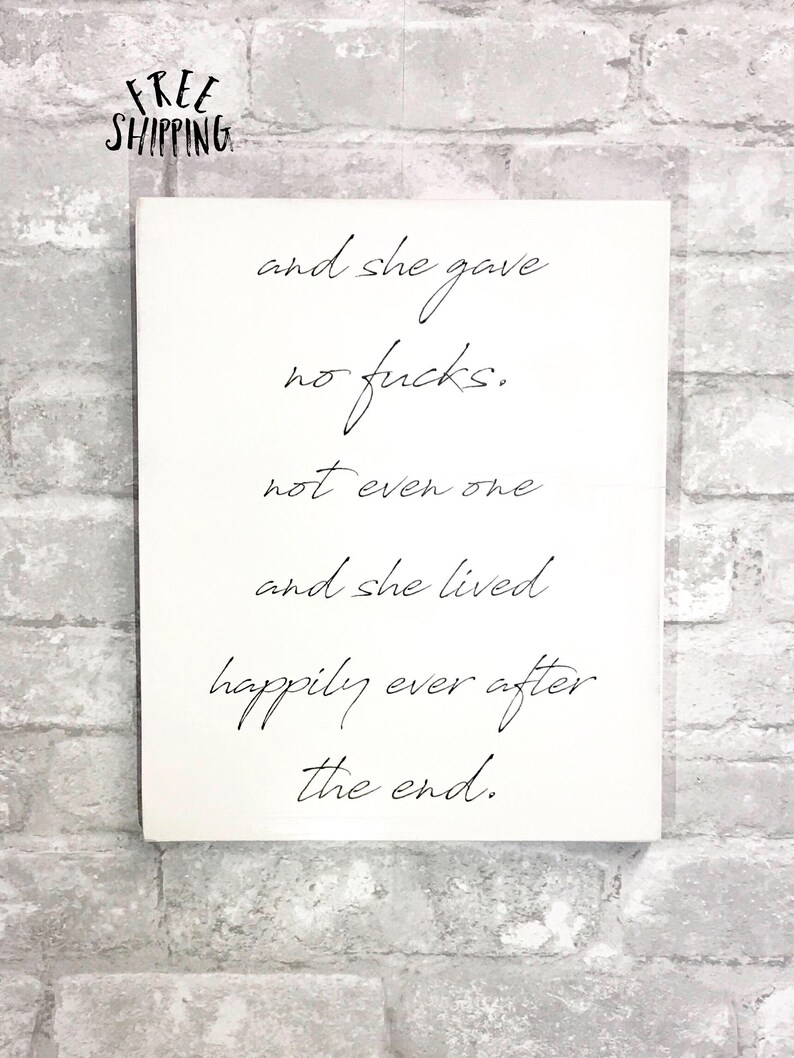 FREE
SHIPPING
and she gave
no fucks.
not even one
and she lived
happily ever after
the end.